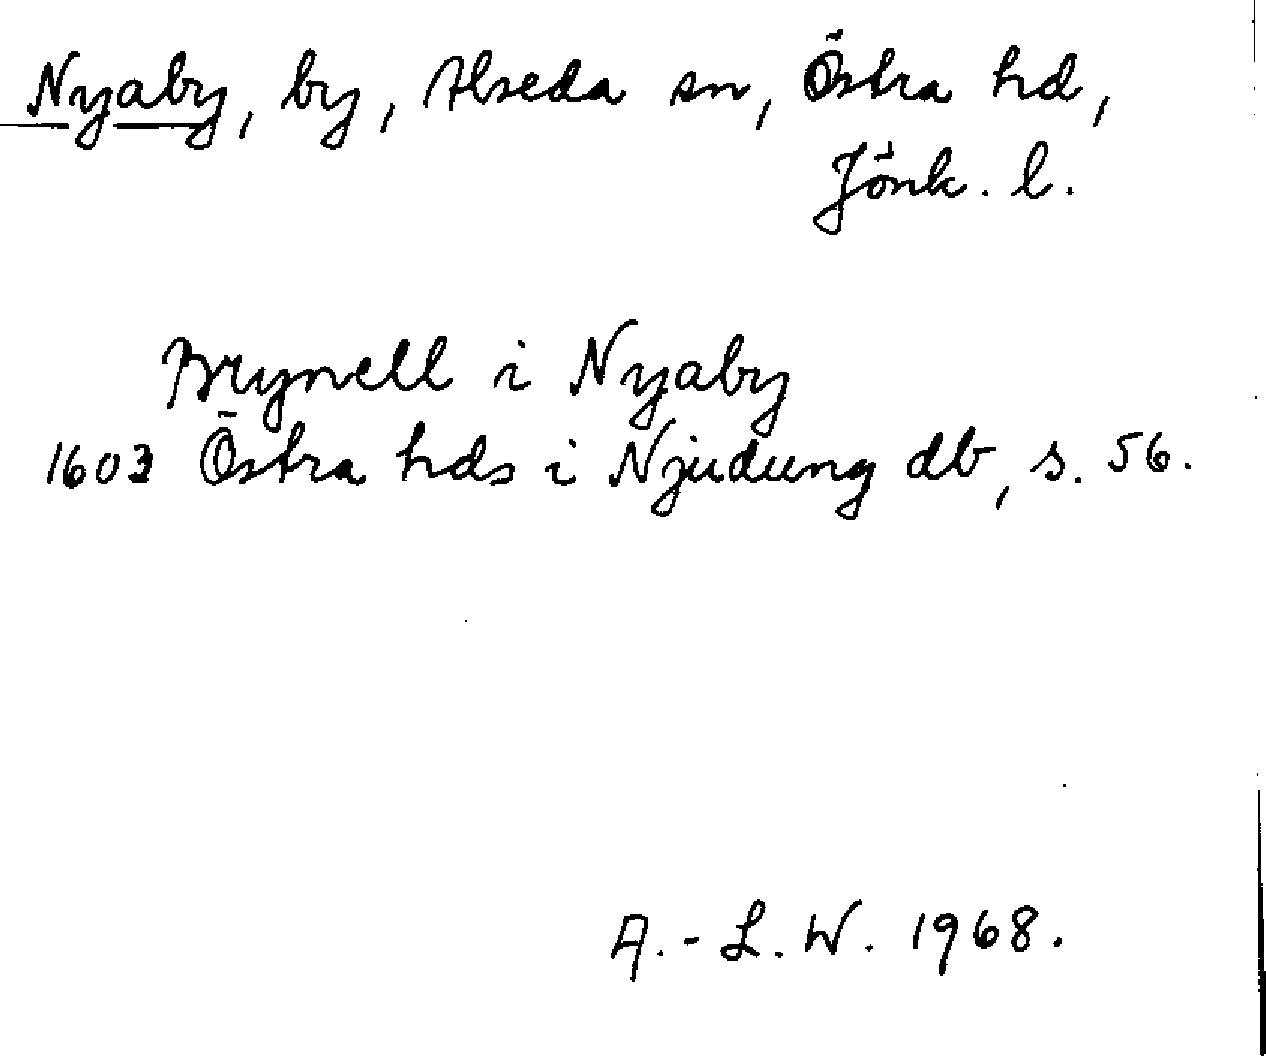 Nyaby, by, Alseda sn, Östra hd,
Jönk. l.
Brynell i Nyaby
1603 Östra hds i Njudung db, s. 56.
A.-L. W. 1968.